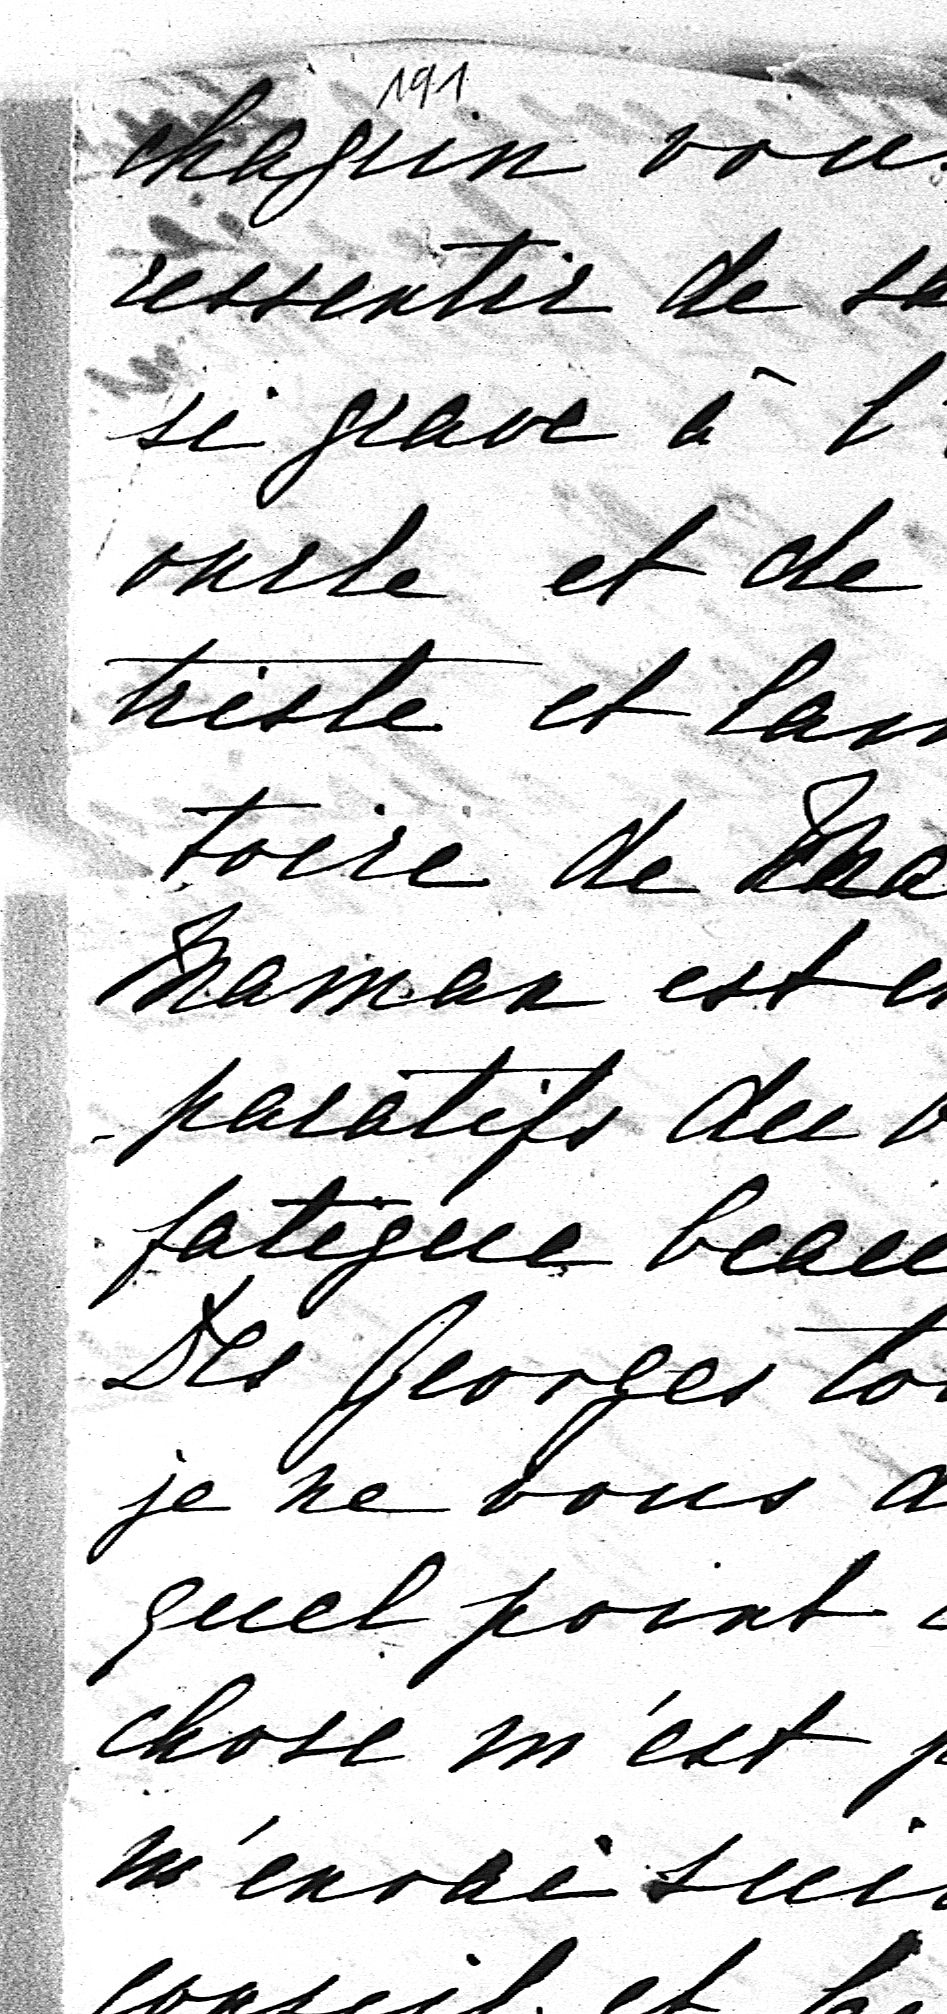 191
chagrin vous
ressentir de sa
si grave à l'
oncle et de
triste et lam
toire de Ma
Maman est en
paratifs du v
fatigue beau
Des Georges to
je ne vous d
quel point
chose m'est p
m'envoie suis
conseil et